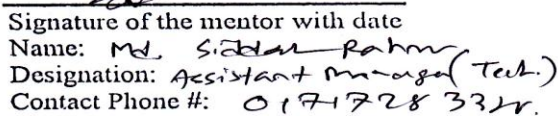 Signature of the mentor with date
Name: Md. Rahm
Designation: Assistant Manager (Tech.)
Contact Phone #: